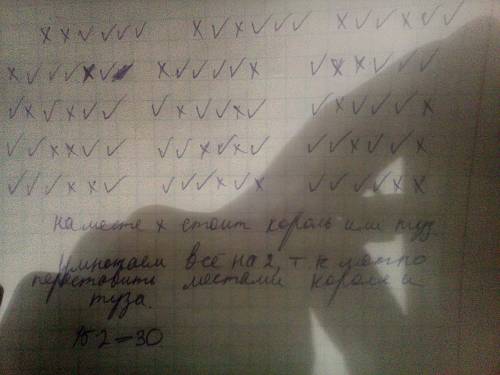 xx✓✓✓✓ x✓x✓✓✓ x✓✓x✓✓
x✓✓✓x✓ x✓✓✓✓x ✓xx✓✓✓
✓x✓x✓✓ ✓x✓✓x✓ ✓x✓✓✓x
✓✓xx✓✓ ✓✓x✓x✓ ✓✓x✓✓x
✓✓✓xx✓ ✓✓✓x✓x ✓✓✓✓xx
на месте х стоит король или туз.
Умножаем все на 2, т к можно
переставить местами короля и
туза.
15·2=30